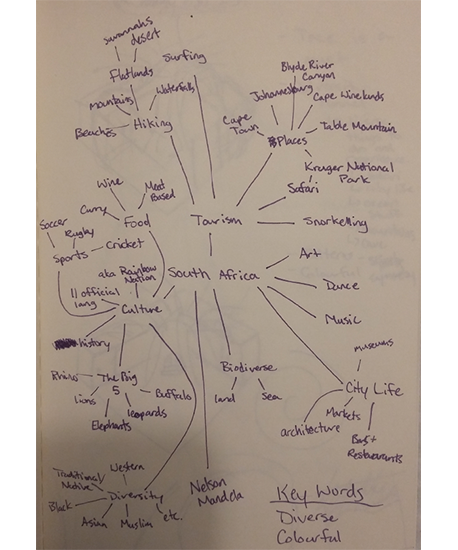 savannahs
desert
Surfing
Flatlands
mountains
Waterfalls
Beaches
Hiking
Blyde River
Canyon
Johannesburg
Cape Winelands
Cape
Town
Places
Table Mountain
Kruger National
Park
Safari
Wine
Meat
Based
Curry
Food
Tourism
Snorkelling
Soccer
Rugby
Sports
Cricket
Art
aka Rainbow
Nation
South Africa
Dance
11 official
lang
Culture
Music
history
museums
Rhino
The Big
5
Lions
Buffalo
leopards
Elephants
Biodiverse
land
Sea
City Life
Markets
architecture
Bars +
Restaurants
Traditional/
Native
Western
Black
Diversity
Asian
Muslim
etc.
Nelson
Mandela
Key Words
Diverse
Colourful